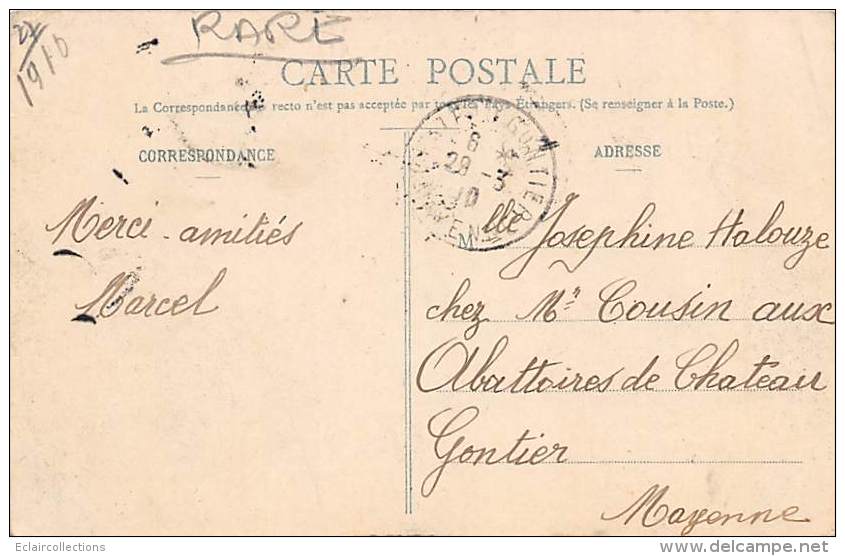 RARE
1910
CARTE POSTALE
La Correspondance au recto n'est pas acceptée par tous les pays Étrangers. (Se renseigner à la Poste.)
CORRESPONDANCE
ADRESSE
GONTIER
28 -3
10
MAYENNE
Merci amitiés
Marcel
Mlle Josephine Halouze
chez Mr Cousin aux
Abattoires de Chateau
Gontier
Mayenne
Eclaircollections
http://www.delcampe.net